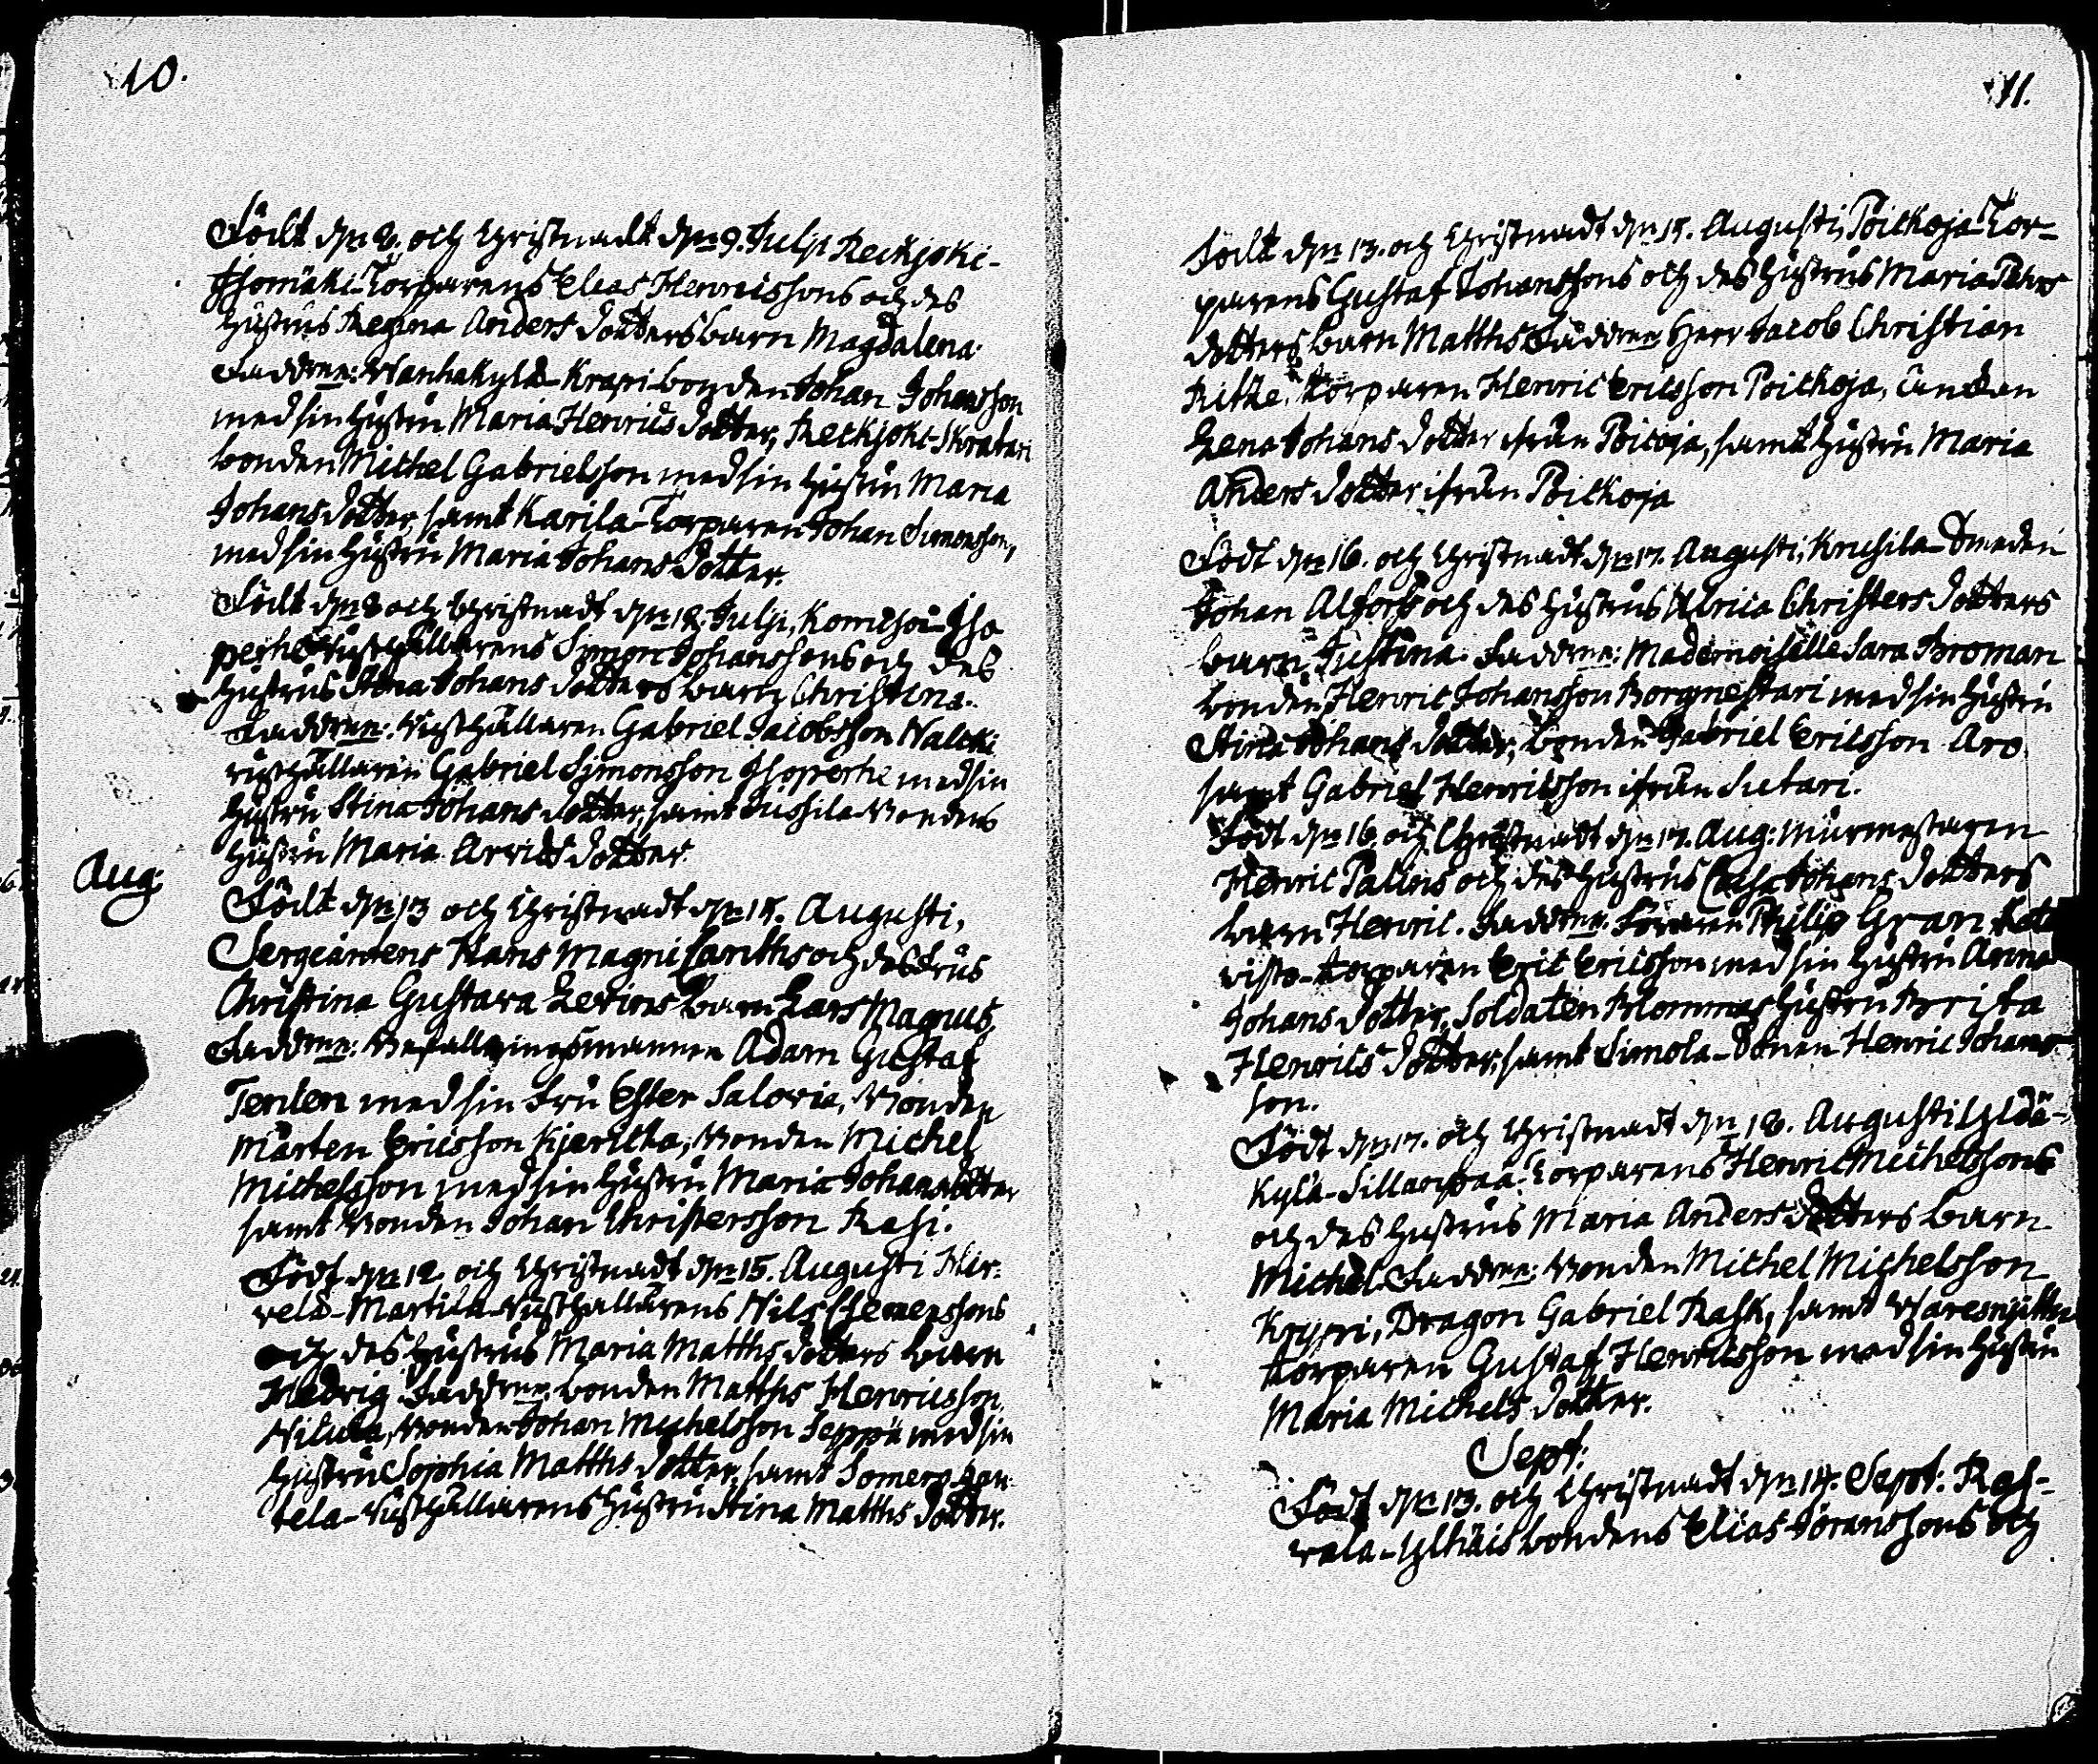 10.
Födt d:n 8. och Christnadt d:n 9. Julji Reckjoki-
Isomäki-Torparens Elias Henricssons och des
hustrus Regina Anders dotters barn Magdalena.
Faddrar: Wanhakylä-Krapi-bonden Johan Johansson
med sin hustru Maria Henrics dotter, Reckjoki-Skrätari
bonden Michel Gabrielsson med sin hustru Maria
Johans dotter, samt Karjla-Torparen Johan Simonsson,
med sin hustru Maria Johans dotter.
Födt d:n 8 och Christnadt d:n 12. Julji, Iso
perhe Rusthållarens Simon Johanssons och des
hustrus Stina Johans dotters barn Christina.
Faddrar: Rusthållaren Gabriel Jacobsson Nalcki
rusthållaren Gabriel Simonsson Isoperhe med sin
hustru Stina Johans dotter, samt Jussila Bondens
hustru Maria Arvids dotter.
Aug:
Födt d:n 13 och Christnadt d:n 15. Augusti,
Sergeantens Hans Magni Canths och des frus
Christina Gustava Levins barn Lars Magnus,
Faddrar: Befallningsmannen Adam Gustaf
Tenlen med sin fru Ester Salovia, Bonden
Mårten Ericsson Kjaritka, Bonden Michel
Michelsson med sin hustru Maria Johansdotter
samt Bonden Johan Christersson Rasi.
Födt d:n 12. och Christnadt d:n 15. Augusti Hir-
velä-Martila-Rusthållarens Nils Clemenssons
och des hustrus Maria Matths dotters barn
Hedvig. Faddrar: bonden Matths Henricsson
Bonden Johan Michelsson Seppä med sin
hustru Sophia Matths dotter, samt Somero Pan-
tela-Rusthållarens hustru Stina Matths dotter.
11.
Födt d:n 13. och Christnadt d:n 15. Augusti, Poickoja-Tor-
parens Gustaf Johanssons och des hustrus Maria Pehrs
dotters barn Matths Faddrar Herr Jacob Christian
Torparen Henric Ericsson Poickoja, änckan
Lena Johans dotter ifrån Poicoja, samt hustru Maria
Anders dotter ifrån Poickoja
Födt d:n 16. och Christnadt d:n 17. Augusti, Krusila-Smeden
Johan Alfors och des hustrus Ulrica Christers dotters
barn, Justina. Faddrar: Mademoiselle Sara Broman
bonden Henric Johansson Borgmestari med sin hustru
Stina Johans dotter, Bonden Gabriel Ericsson Aro
samt Gabriel Henricsson ifrån Sutari.
Födt d:n 16. och Christnadt d:n 17. Aug: Murmestaren
Henric Palins och des hustrus Caisa Johans dotters
barn Henric. Faddrar. Föraren Philip Gran
visto-torparen Eric Ericsson med sin hustru Anna
Johans dotter, Soldaten Blommas hustru Brita
Henrics dotter, samt Simola-Sonen Henric Johans-
son.
Födt d:n 17. och Christnadt d:n 18. Augusti Ylä-
Kylä-Sillanpää-Torparens Henric Michelssons
och des hustrus Maria Anders dotters barn
Michel Faddrar: Bonden Michel Michelsson
Kyyri, Dragon Gabriel Rask, samt
torparen Gustaf Henricsson med sin hustru
Maria Michels dotter.
Sept:
Födt d:n 13. och Christnadt d:n 14. Sept: Ras-
vala-Ylhäis bondens Elias Göranssons och